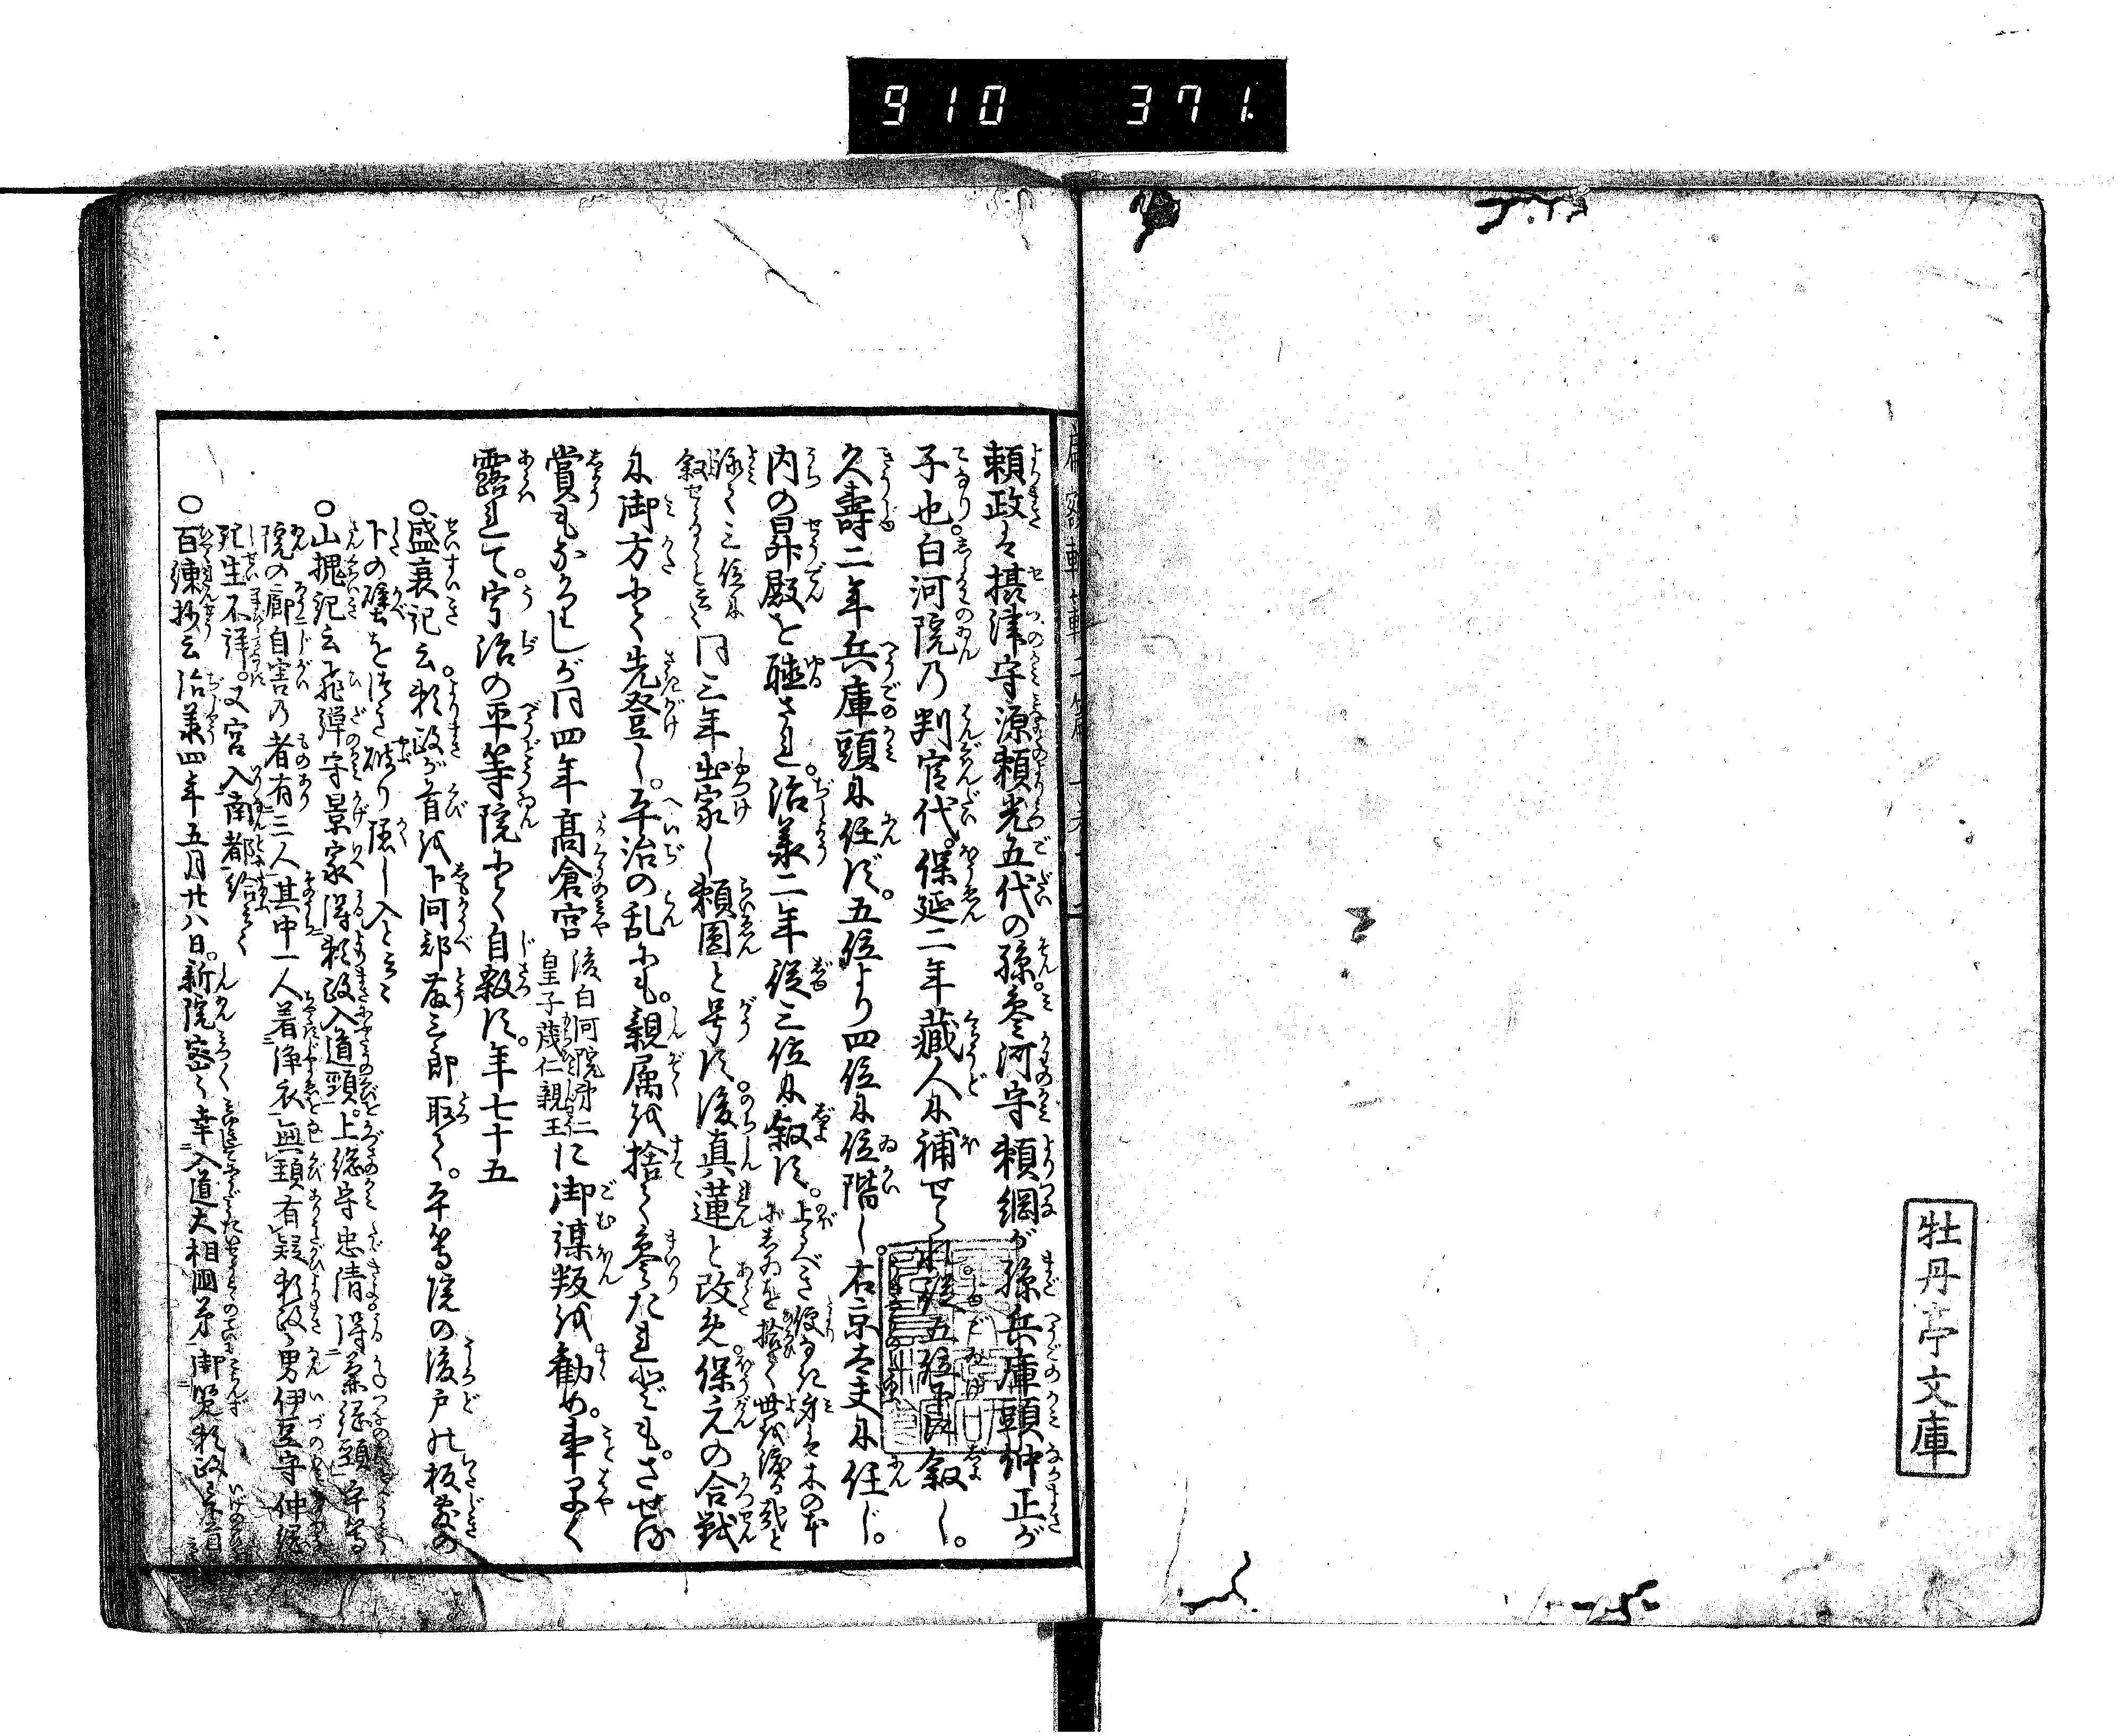 910 371.
牡丹亭文庫
頼政は摂津守源頼光五代の孫。参河守頼綱が孫兵庫頭仲正が
子也。白河院の判官代。保延二年蔵人に補せられ従五位下に叙し。
久寿二年兵庫頭に任ず。五位より四位に位階し右京大夫に任じ。
内の昇殿を聴され。治承二年従三位に叙す。上るべき便なき身は木の本に
しゐを拾ひて世を渡る哉と
詠て三位に
叙せらるゝと云
同三年出家し頼円と号す。後真蓮と改め。保元の合戦
に御方にて先登し。平治の乱にも。親属を捨て参たれども。させる
賞もなかりしが同四年高倉宮後白河院第二
皇子茂仁親王に御謀叛を勧め。事早く
露れて。宇治の平等院にて自殺す。年七十五
○盛衰記云。頼政が首を下河部藤三郎取て。平等院の後戸の板敷の
下の壁をつき破り隠し入と云々
○山槐記云飛騨守景家得頼政入道頸。上総守忠清得兼綱頸宇等
院の廊自害の者有三人其中一人着浄衣無頸有疑頼政男伊豆守仲綱
死生不詳。又宮入南都給云々
○百練抄云治承四年五月廿八日。新院密々幸入道大相国第御覧頼政